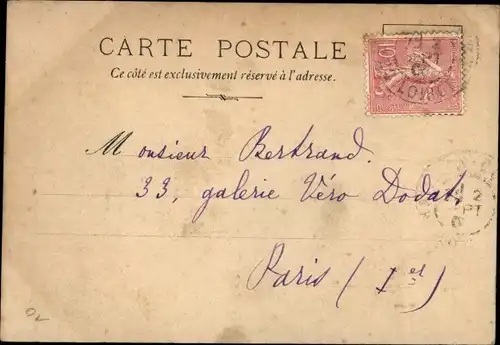 CARTE POSTALE
Ce côté est exclusivement réservé à l'adresse.
10
LOIRET
Monsieur Bertrand.
33, galerie Véro Dodat,
Paris (1er)